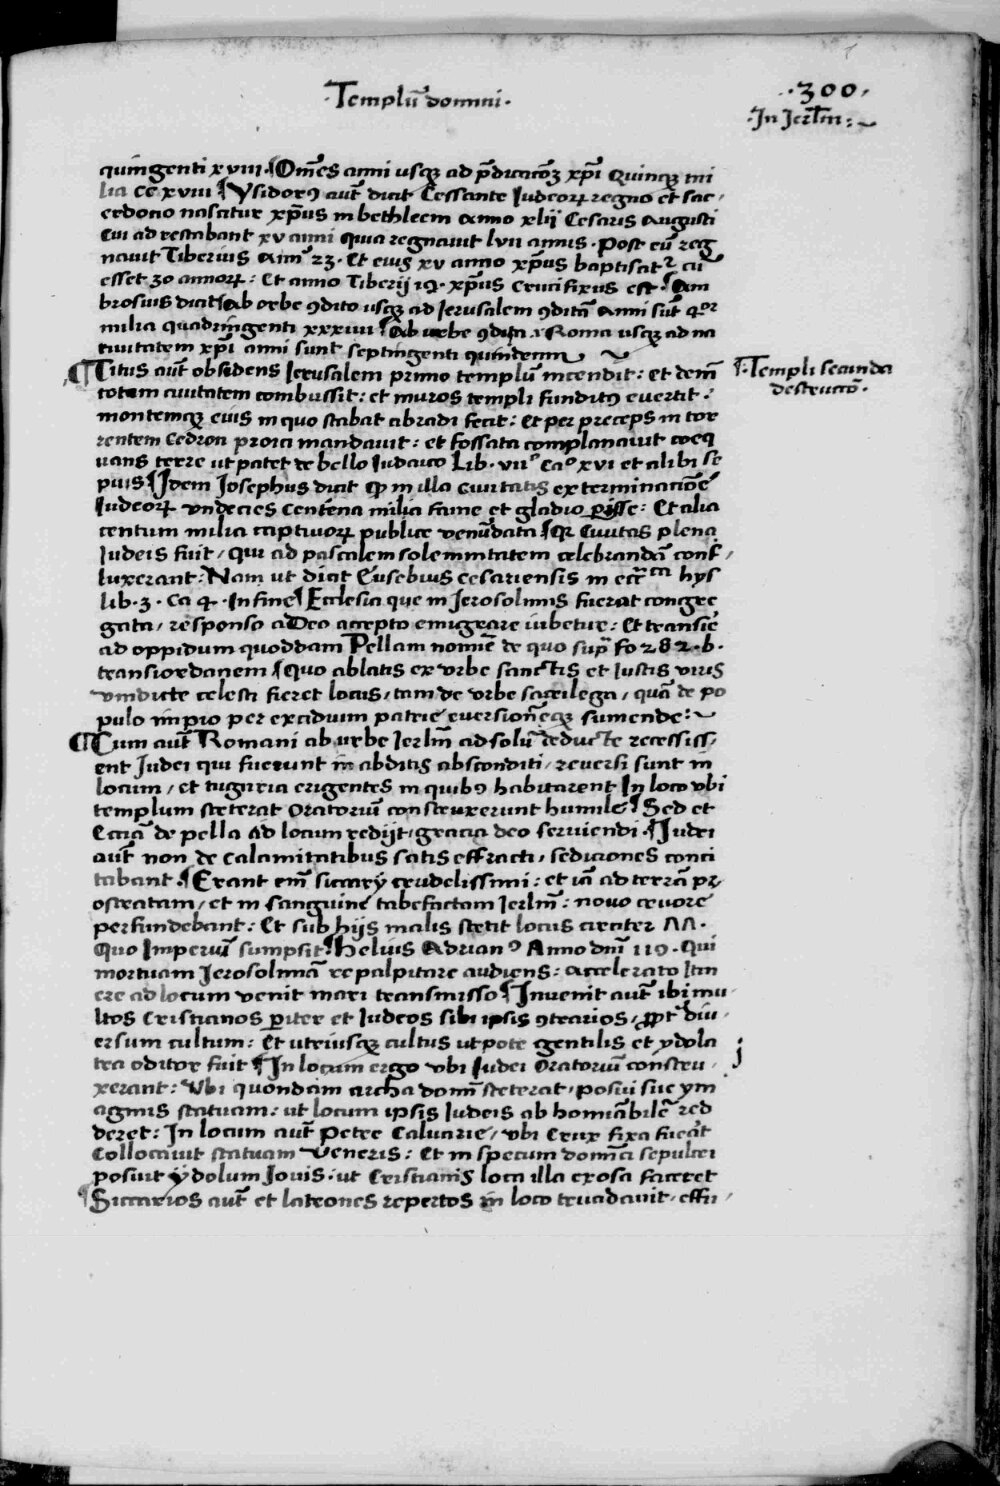 ·Templū domini·
·300·
·In Jerłm:~
quingenti xviii ¶ Om̄es anni usqꝫ ad p̄dicacōꝫ xp̄i Quinqꝫ mi
lia cc xviii ¶ Ysidorꝯ aut̄ dicit Cessante Iudeoꝝ regno et sac,
erdocio nascitur xp̄us in bethleem Anno xlij Cesaris Augusti
Cui ad restabant xv anni quia regnavit lvii annis · Post eū reg
navit Tiberius Ann° 23 · Et eius xv anno xp̄us baptisatᷣ cū
esset 30 annoꝝ: Et anno Tiberij 19 · xp̄us Crucifixus est ¶ Am
brosius dicit ¶ Ab orbe ꝯdito usqꝫ ad Jerusalem ꝯditā Anni sūt qᵒʳ
milia quadringenti xxxiiii ¶ Ab urbe ꝯdita · Roma usqꝫ ad na
tivitatem xp̄i anni sunt septingenti quindecim
¶ Titus aut̄ obsidens Ierusalem primo templū incendit: et dem̄
totam civitatem combussit: et muros templi funditꝯ evertit:
montemqꝫ eius in quo stabat abradi fecit: Et per preceps in tor
rentem Cedron proici mandavit: et fossata complanavit coeq
uans terre ut patet de bello Iudaico Lib · vii° Ca° xvi et alibi se
pius ¶ Idem Josephus dicit ꝙ in illa civitatis exterminacōe
Iudeoꝝ undecies Centena milia fame et gladio ꝑisse: Et alia
centum milia captivoꝝ publice venūdata ¶ Qꝛ Civitas plena
Iudeis fuit, qui ad pascalem solemnitatem celebrandā conf,
luxerant: Nam ut dicit Eusebius cesariensis in ecc̄ᶜᵃ hys
lib · 3 · Ca 4 · In fine ¶ Ecclesia que in Jerosolimis fuerat congre
gata, responso a Deo accepto emigrare iubetur: Et transie
ad oppidum quoddam Pellam nomīe de quo sup̄ fo 282 · b ·
transiordanem ¶ Quo ablatis ex urbe sanctis et Iustis viris
vindicte celesti fieret locus, tam de urbe sacrilega, quā de po
pulo impio per excidium patrie eversionēqꝫ sumende:~
¶ Cum aut̄ Romani ab urbe Ierlm̄ ad solū deducte recessiss,
ent Iudei qui fuerunt in abditis absconditi, reversi sunt in
locum, et tuguria erigentes in quibꝯ habitarent In loco ubi
templum steterat Oratoriū construxerunt humile ¶ Sed et
Ecciā de pella ad locum redijt, gracia deo serviendi · ¶ Iudei
aut̄ non de calamitatibus satis effracti, sediciones conci
tabant · ¶ Erant em̄ siccarij crudelissimi: et iā ad terrā pr,
ostratam, et in sanguine tabefactam Ierlm̄: novo cruore
perfundebant: Et sub hijs malis stetit locus circiter
Quo Imperiū sumpsit ¶ Helius Adrianꝯ Anno dn̄i 119 · Qui
mortuam Jerosolimā repalpitare audiens: accelerato Itin
ere ad locum venit mari transmisso ¶ Invenit aut̄ ibi mu,
ltos Cristianos ꝑiter et Iudeos sibi ipsis ꝯtrarios, ꝓpt̄ div,
ersum cultum: Et utriusqꝫ cultus utpote gentilis et ydola
tra oditor fuit ¶ In locum ergo ubi Iudei Oratoriū constru,
xerant: Ubi quondam archa domī steterat, posuit sue ym
aginis statuam: ut locum ipsis Iudeis abhomīabilē red
deret: In locum aut̄ Petre Calvarie, ubi Crux fixa fuerat
Collocavit statuam Veneris: Et in specum domīci sepulcri
posuit ÿdolum Jovis · ut Cristianis loca illa exosa faceret
¶ Siccarios aut̄ et latrones repertos in loco trucidavit, effu,
¶·Templi secunda
destructō·
j